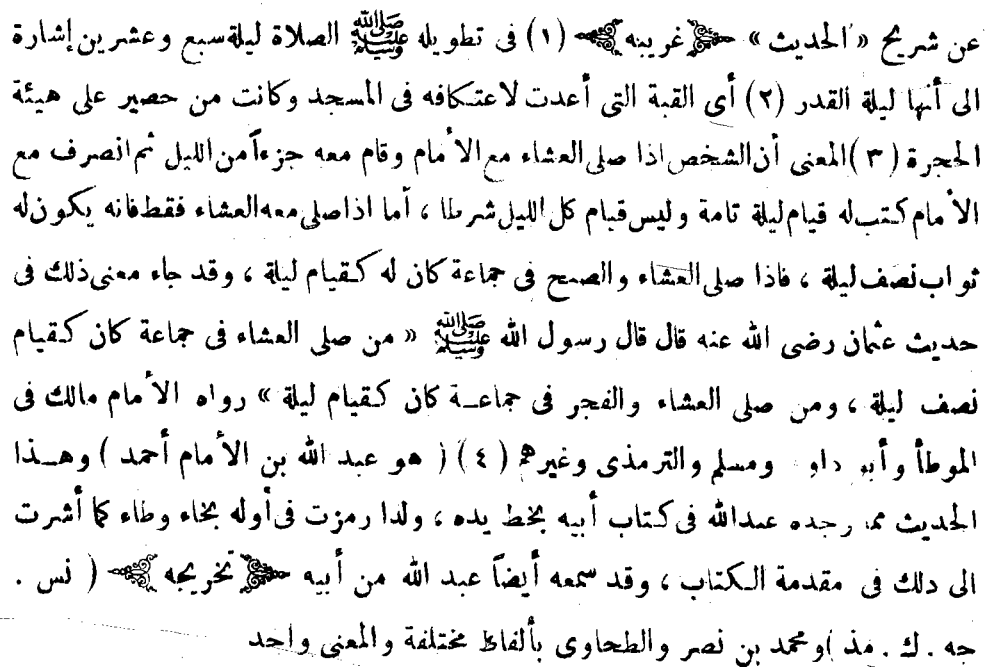 عن شريح « الحديث » ﴿غريبه﴾ (١) فى تطويله ﷺ الصلاة ليلة سبع وعشرين إشارة
الى أنها ليلة القدر (٢) أى القبة التى أعدت لاعتكافه فى المسجد وكانت من حصير على هيئة
الحجرة (٣) المعنى أن الشخص اذا صلى العشاء مع الأمام وقام معه جزءاً من الليل ثم انصرف مع
الأمام كتب له قيام ليلة تامة وليس قيام كل الليل شرطا ، أما اذا صلى معه العشاء فقط فانه يكون له
ثواب نصف ليلة ، فاذا صلى العشاء والصبح فى جماعة كان له كقيام ليلة ، وقد جاء معنى ذلك فى
حديث عثمان رضى الله عنه قال قال رسول الله ﷺ « من صلى العشاء فى جماعة كان كقيام
نصف ليلة ، ومن صلى العشاء والفجر فى جماعة كان كقيام ليلة » رواه الأمام مالك فى
الموطأ وأبو داود ومسلم والترمذى وغيرهم (٤) ( هو عبد الله بن الأمام أحمد ) وهذا
الحديث مما وجده عبدالله فى كتاب أبيه بخط يده ، ولذا رمزت فى أوله بخاء وطاء كما أشرت
الى ذلك فى مقدمة الكتاب ، وقد سمعه أيضاً عبد الله من أبيه ﴿تخريجه﴾ ( نس .
جه . ك . مذ ) ومحمد بن نصر والطحاوى بألفاظ مختلفة والمعنى واحد